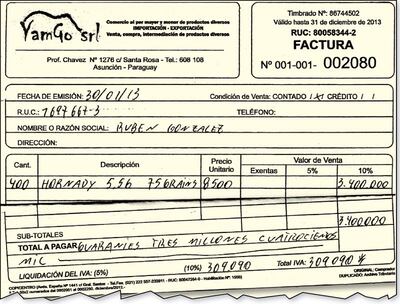 VamGo srl
Comercio al por mayor y menor de productos diversos
IMPORTACIÓN - EXPORTACIÓN
Venta, compra, intermediación de productos diversos
Prof. Chavez Nº 1276 c/ Santa Rosa - Tel.: 608 108
Asunción - Paraguay
Timbrado Nº: 86744502
Válido hasta 31 de diciembre de 2013
RUC: 80058344-2
FACTURA
Nº 001-001- 002080
FECHA DE EMISIÓN: 30/01/13 Condición de Venta: CONTADO / X/ CRÉDITO / /
R.U.C.: 7697667-3 TELÉFONO:
NOMBRE O RAZÓN SOCIAL: RUBEN GONZALEZ
DIRECCIÓN:
Cant. Descripción Precio Unitario Valor de Venta
Exentas 5% 10%
400 HORNADY 5,56 75 GRAINS 8500 3.400.000
3.400.000
SUB-TOTALES
TOTAL A PAGAR: GUARANIES TRES MILLONES CUATROCIENTOS
MIL
LIQUIDACIÓN DEL IVA: (5%) (10%) 309090 Total IVA: 309090
ORIGINAL: Comprador
DUPLICADO: Archivo Tributario